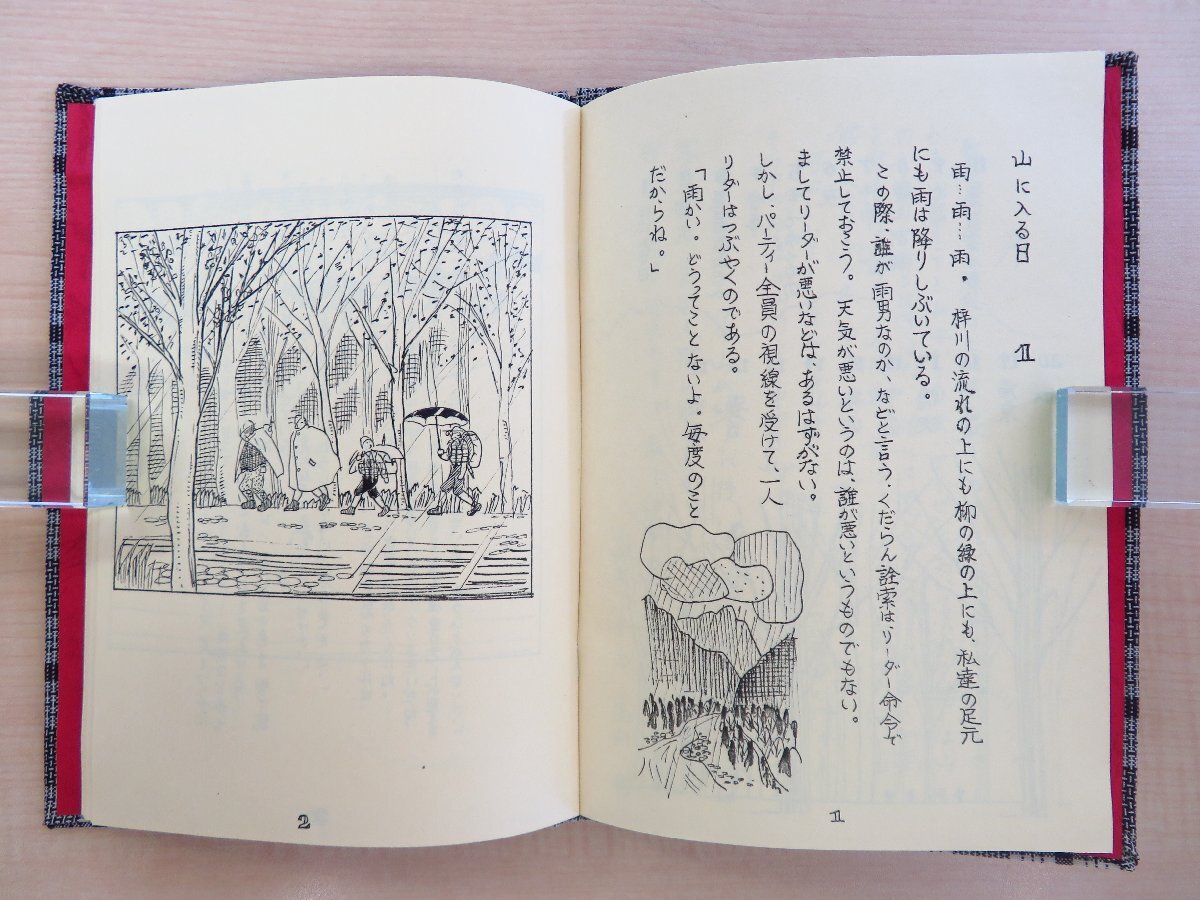 山に入る日　1
雨…雨…雨。梓川の流れの上にも柳の緑の上にも、私達の足元
にも雨は降りしぶいている。
この際、誰が雨男なのか、などと言う、くだらん詮索は、リーダー命令で
禁止しておこう。天気が悪いというのは、誰が悪いといつものでもない。
ましてリーダーが悪いなどは、あるはずがない。
しかし、パーティー全員の視線を受けて、一人
リーダーはつぶやくのである。
「雨かい。どうってことないよ。毎度のこと
だからね。」
1
2